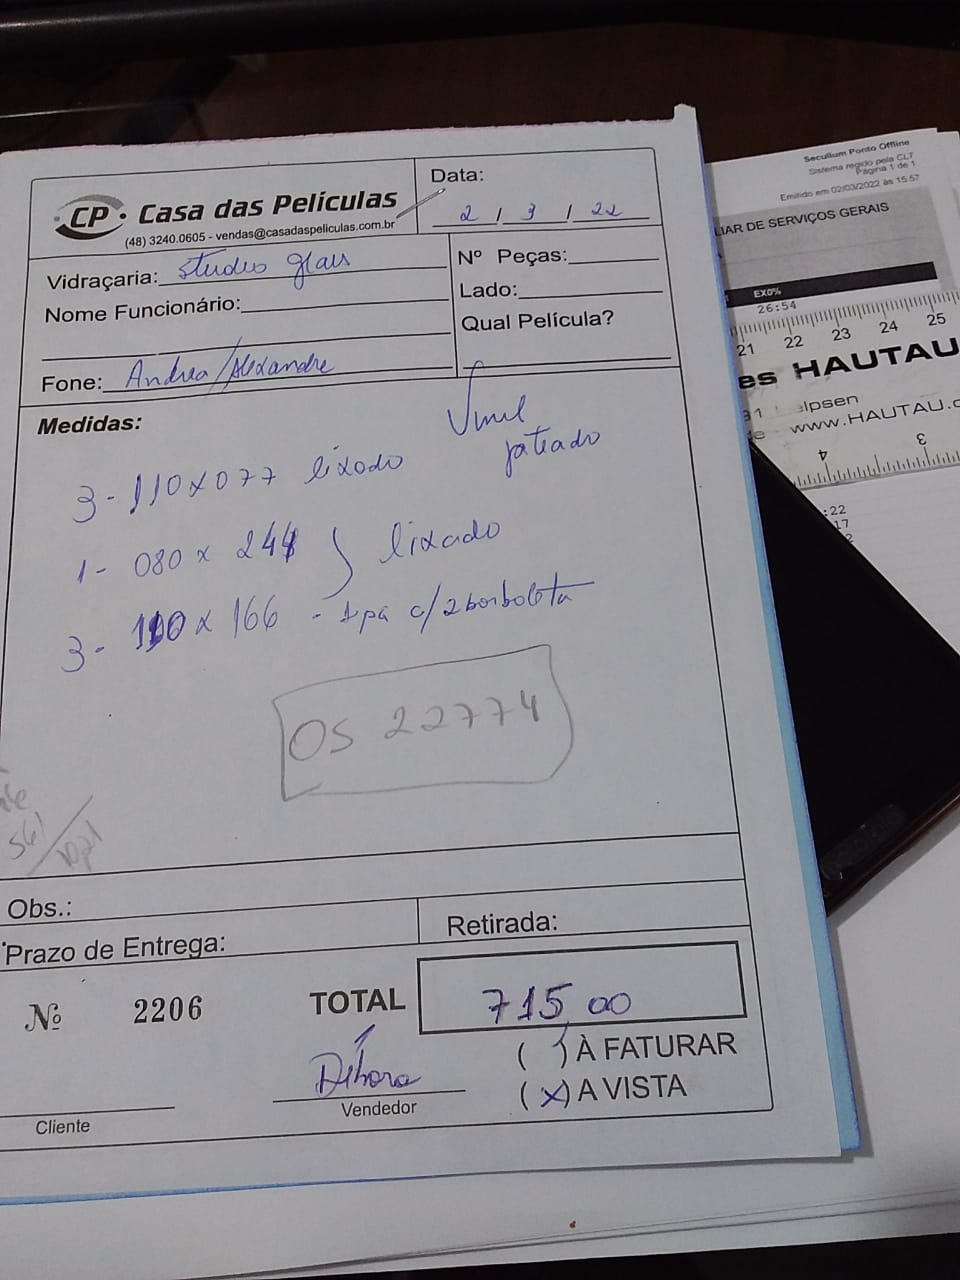 CP. Casa das Películas
(48) 3240.0605 - vendas@casadaspeliculas.com.br
Data:
2 / 3 / 22
Vidraçaria: Studio glass
Nome Funcionário:
Fone: Andrea/Alexandre
Nº Peças:
Lado:
Qual Película?
Medidas:
Vinil
jateado
3- 110x077 lixado
1- 080 x 244 } lixado
3- 110 x 166 - 1pa c/2 borboleta
OS 22774
561/1021
Obs.:
Prazo de Entrega:
Retirada:
Nº 2206
TOTAL 715,00
( ) À FATURAR
(x) A VISTA
Débora
Vendedor
Cliente
Secullum Ponto Offline
Sistema regido pela CLT
Página 1 de 1
Emitido em 02/03/2022 às 15:57
LIAR DE SERVIÇOS GERAIS
EX0%
26:54
21 22 23 24 25
es HAUTAU
31 elpsen
www.HAUTAU.
4 3
:22
17
2